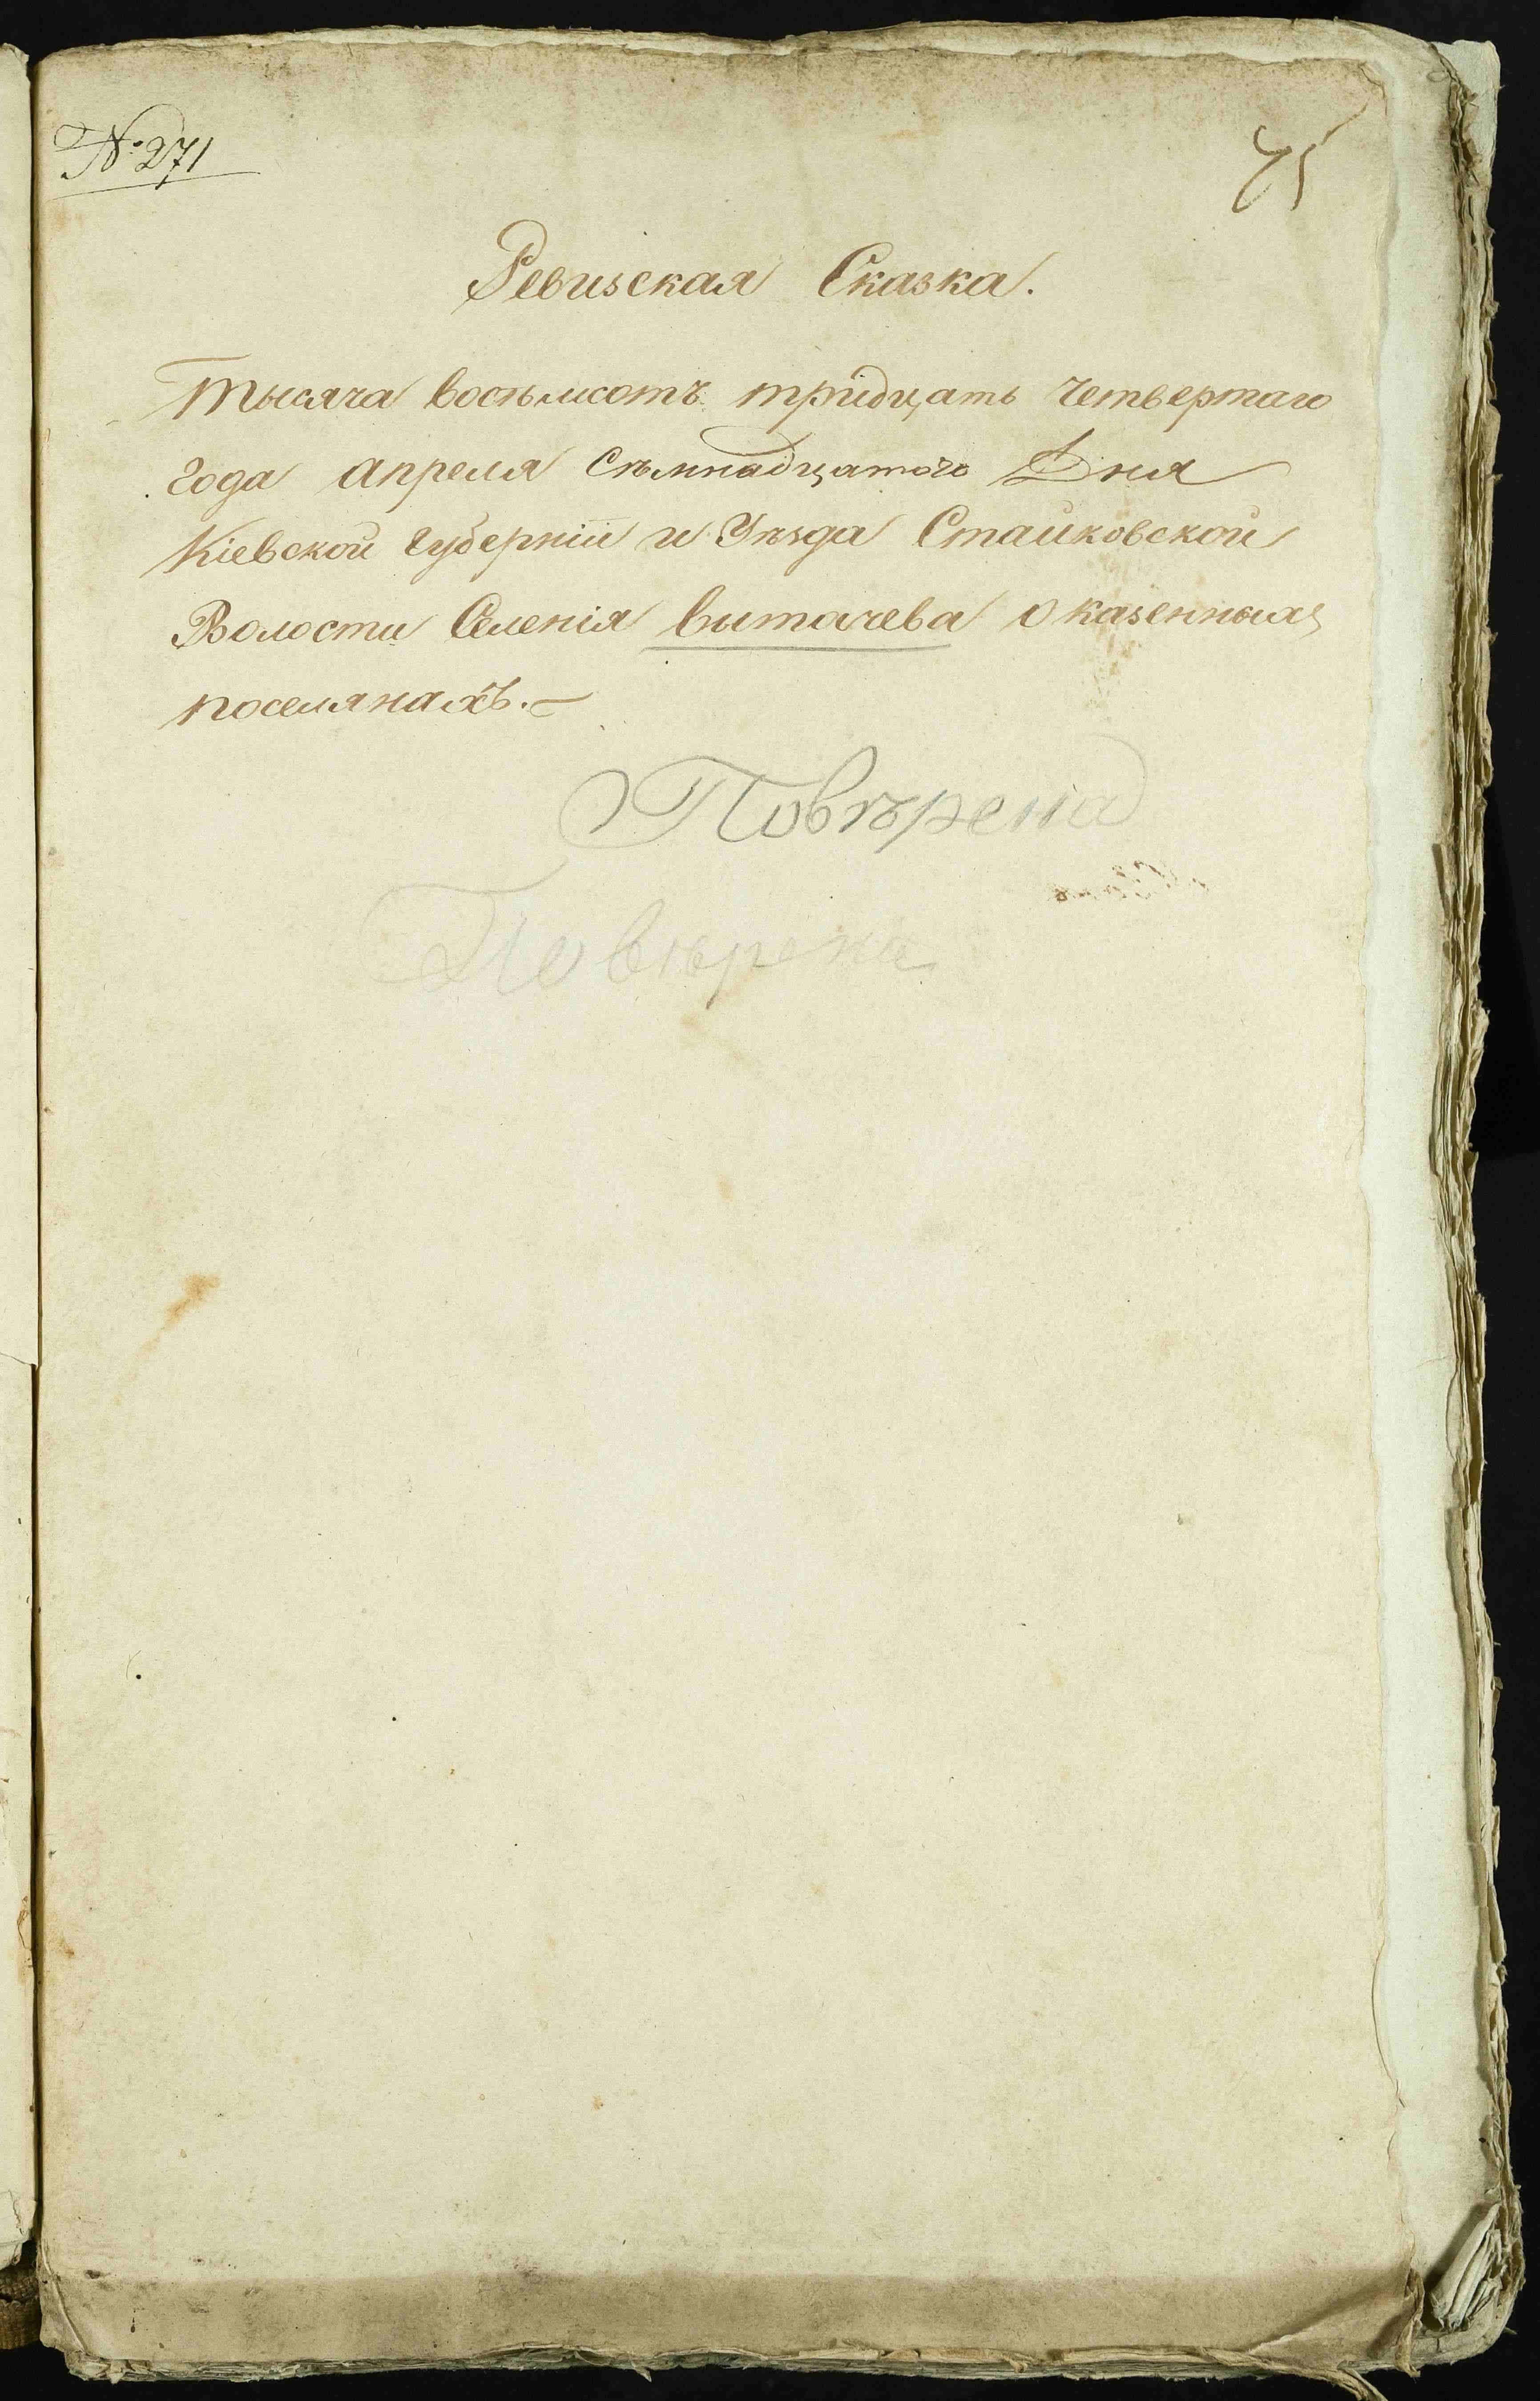 № 271
75
Ревизская Сказка.
Тысяча восѣмсотъ тридцать четвертаго
года апреля сѣмнадцатого Дня
Кіевской губерніи и Уѣзда Стайковской
Волости Селенія витачева о казенныхъ
поселянахъ.
Повѣрена
Повѣрена